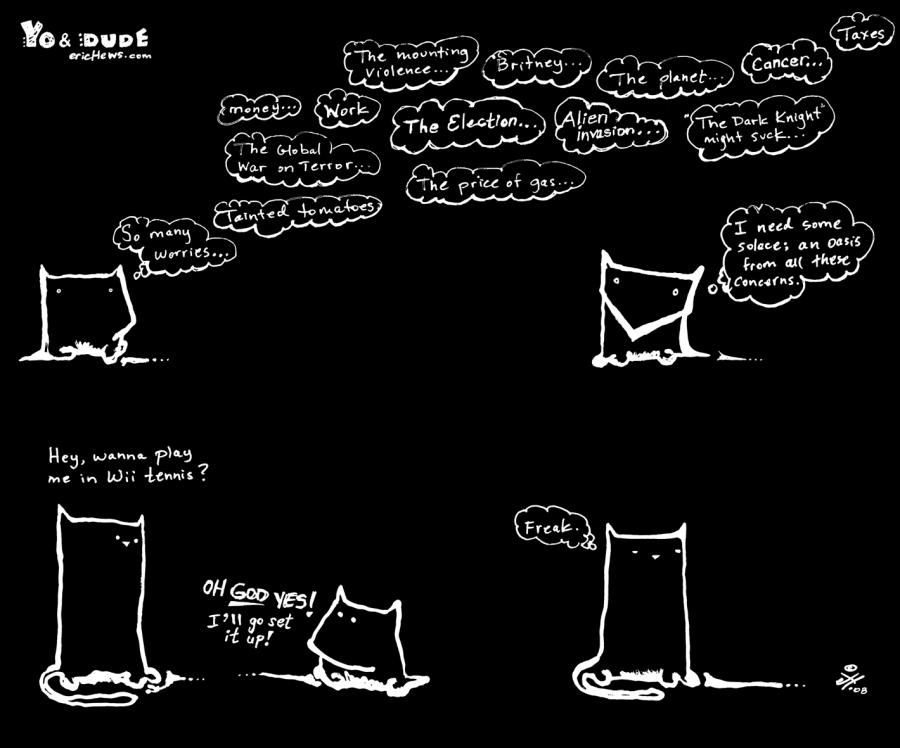 YO & DUDE
ericHews.com
So many
worries...
Tainted tomatoes
The Global
War on Terror...
money...
Work
The mounting
violence...
Britney...
The Election...
The price of gas...
Alien
invasion...
The planet...
Cancer...
"The Dark Knight"
might suck...
Taxes
I need some
solace; an oasis
from all these
concerns.
Hey, wanna play
me in Wii tennis?
OH GOD YES!
I'll go set
it up!
Freak.
'08